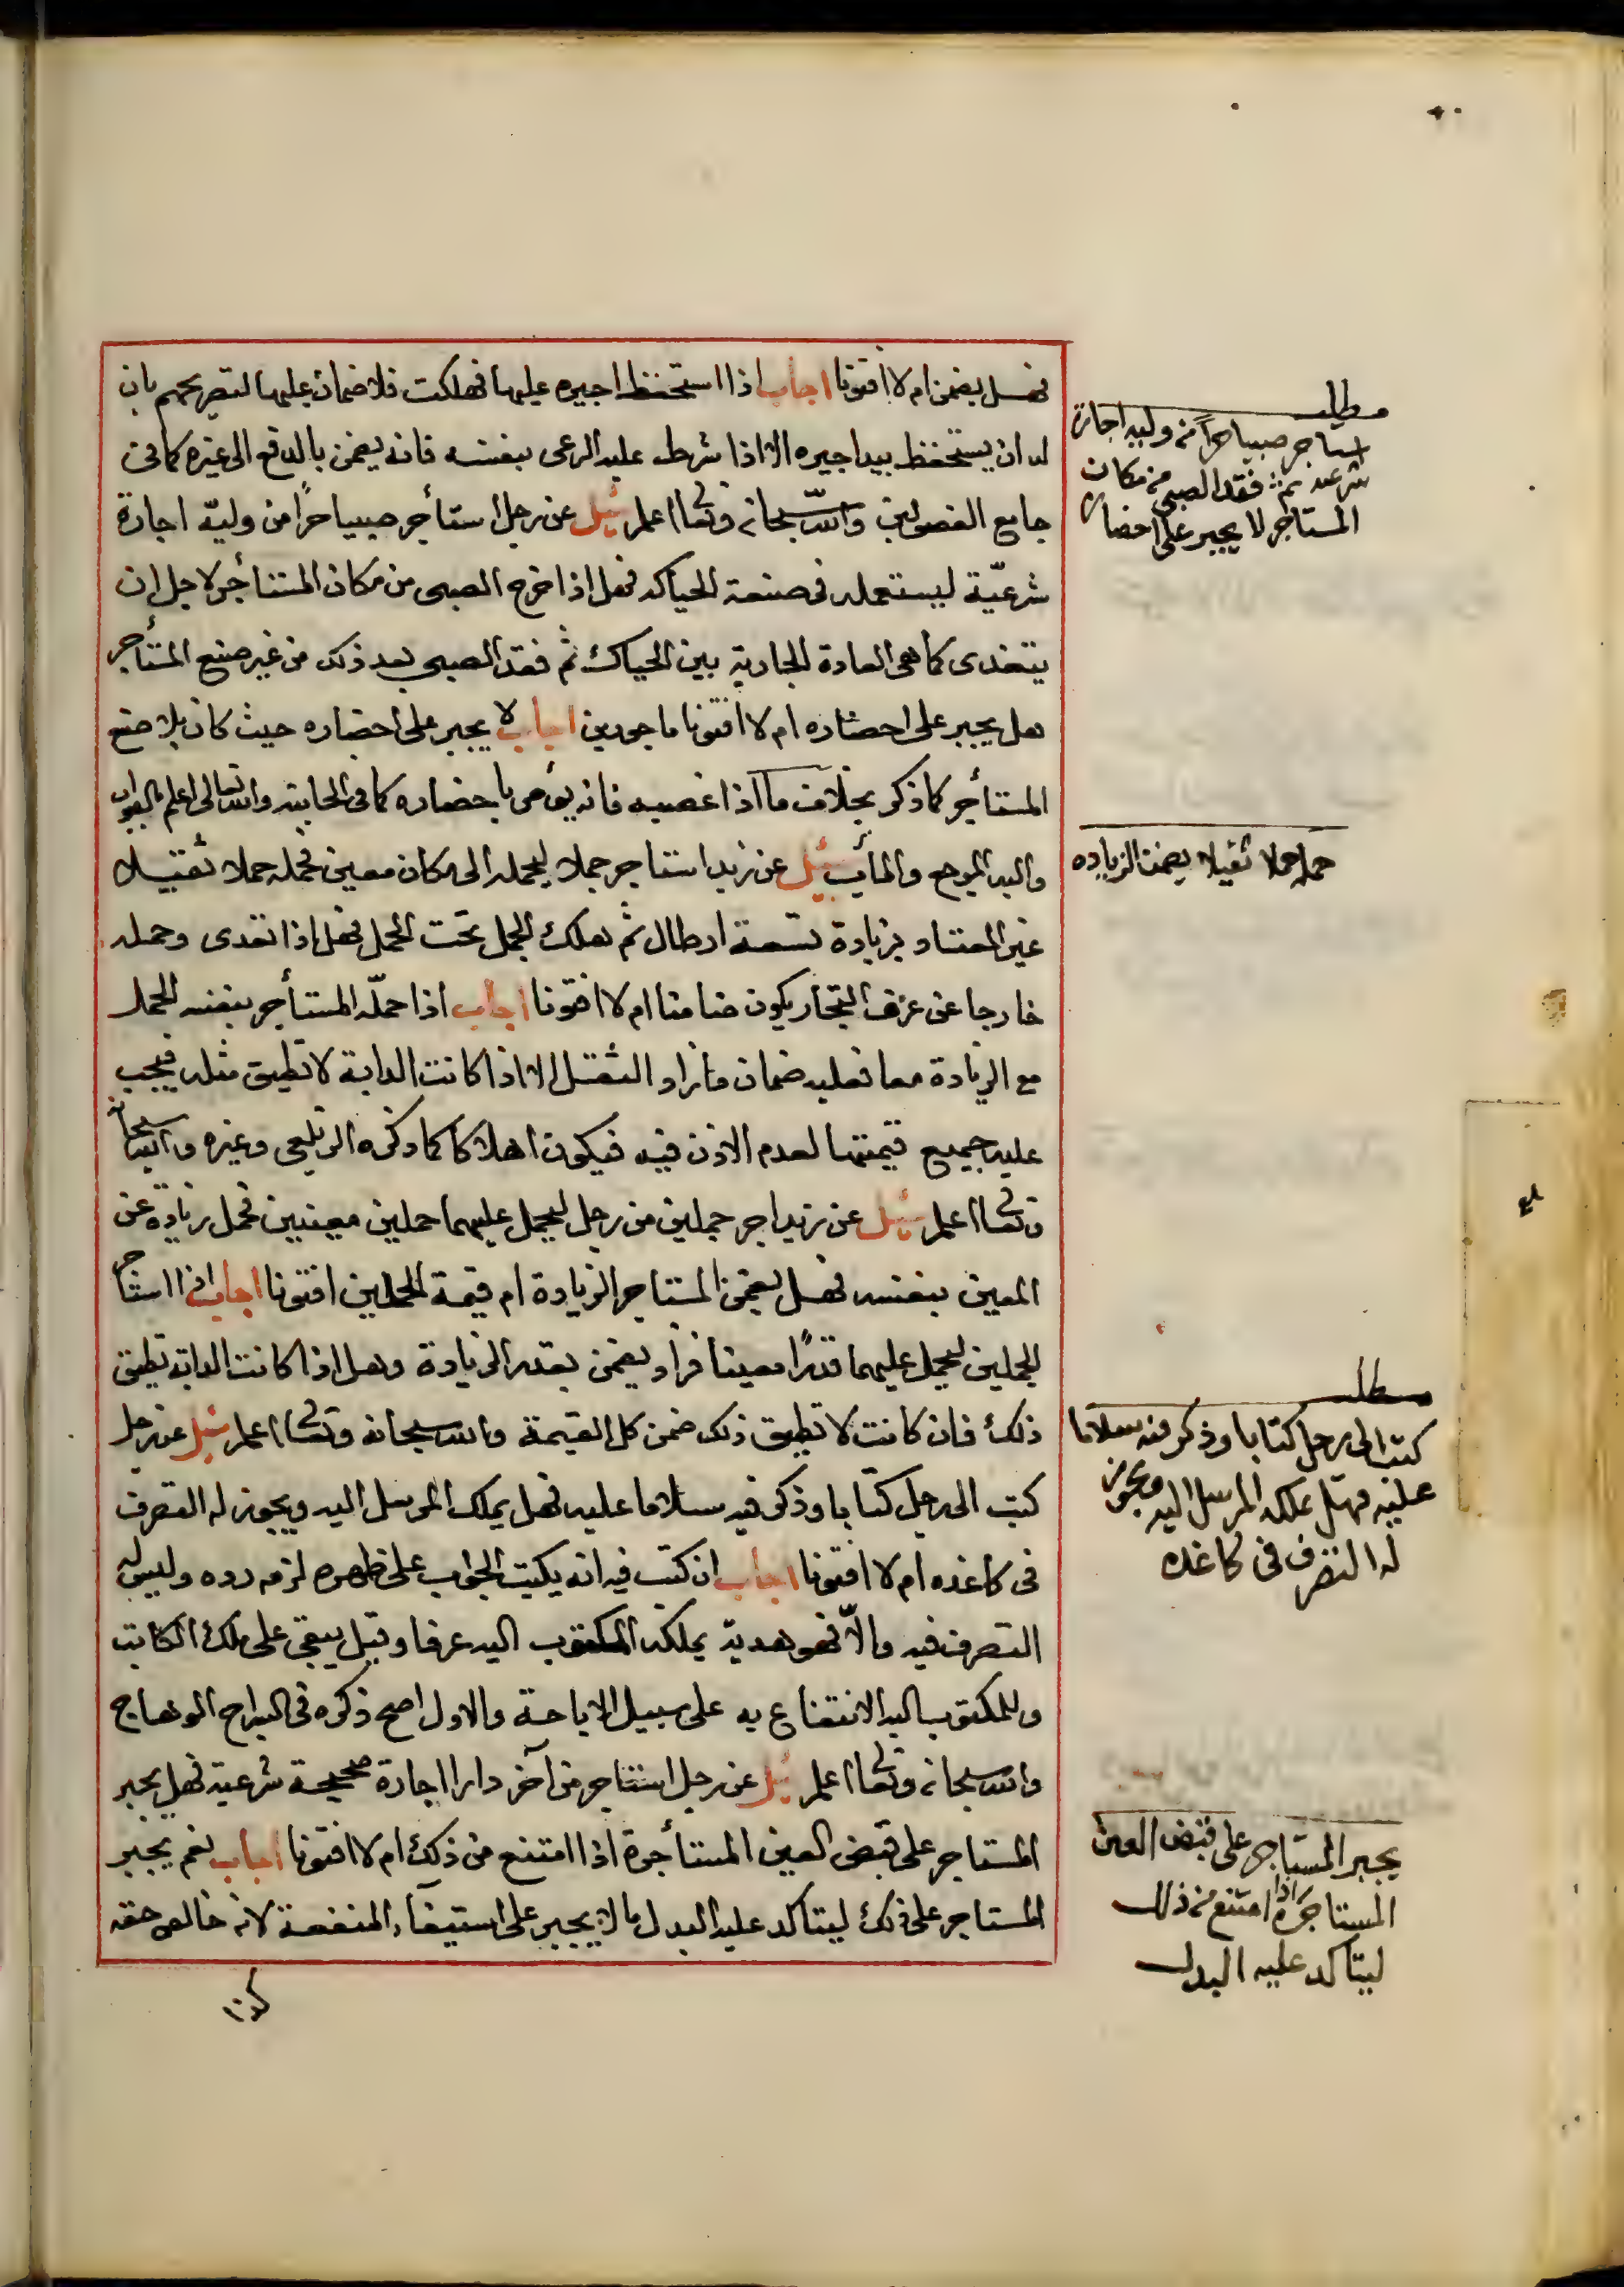 فهل يضمن ام لا افتونا اجاب اذا استحفظ اجيره عليها فهلكت فلا ضمان عليها لتصريحهم بان
له ان يستحفظ بيد اجيره الا اذا شرط عليه الرعى بنفسه فانه يضمن بالدفع الى غيره كما فى
جامع الفصولين والله سبحانه وتعالى اعلم سئل عن رجل استأجر صبيا حرًا من وليّه اجارة
شرعيّة ليستعمله فى صنعة الحياكه فهل اذا خرج الصبى من مكان المستأجر لاجل ان
يتغدى كما هى العادة الجارية بين الحياك ثم فقد الصبى بعد ذلك من غير صنع المستأجر
هل يجبر على احضاره ام لا افتونا ماجورين اجاب لا يجبر على احضاره حيث كان بلا صنع
المستأجر كما ذكر بخلاف ما اذا غصبه فانه يؤمر باحضاره كما فى الخانيه والله تعالى اعلم بالصواب
واليه المرجع والمآب سئل عن زيد استاجر جملا ليحمله الى مكان معين فحمله حملا ثقيلا
غير المعتاد بزيادة تسعة ارطال ثم هلك الجمل تحت الحمل فهل اذا تعدى وحمله
خارجا عن عرف التجار يكون ضامنا ام لا افتونا اجاب اذا حمّله المستأجر بنفسه الحمل
مع الزيادة معا فعليه ضمان ما زاد الثقل الا اذا كانت الدابة لا تطيق مثله فيجب
عليه جميع قيمتها لعدم الاذن فيه فيكون اهلاكا كما ذكره الزيلعى وغيره والله سبحانه
وتعالى اعلم سئل عن زيد اجر جملين من رجل ليحمل عليهما حملين معينين فحمل زيادة عن
المعين بنفسه فهل يضمن المستاجر الزيادة ام قيمة الجملين افتونا اجاب اذا استأجر
الجملين ليحمل عليهما قدرًا معينا فزاد يضمن بقدر الزيادة وهل اذا كانت الدابة تطيق
ذلك فان كانت لا تطيق ذلك ضمن كل القيمة والله سبحانه وتعالى اعلم سئل عن رجل
كتب الى رجل كتابا وذكر فيه سلاما عليه فهل يملك المرسل اليه ويجوز له التصرف
فى كاغده ام لا افتونا اجاب ان كتب فيه انه يكتب الجواب على ظهره لزمه رده وليس له
التصرف فيه والّا فهو هدية يملكه المكتوب اليه عرفا وقيل يبقى على ملك الكاتب
وللمكتوب اليه الانتفاع به على سبيل الاباحة والاول اصح ذكره فى السراج الوهاج
والله سبحانه وتعالى اعلم سئل عن رجل استاجر من آخر دارا اجارة صحيحة شرعية فهل يجبر
المستاجر على قبض العين المستأجرة اذا امتنع من ذلك ام لا افتونا اجاب نعم يجبر
المستاجر على ذلك ليتاكد عليه البدل ما لا يجبر على استيفآء المنفعة لانه خالص حقه
مطلب
استاجر صبيا حرًا من وليه اجارة
شرعيه ثم فقد الصبى من مكان
المستاجر لا يجبر على احضاره
حمله حملا ثقيلا يضمن الزياده
مطلب
كتب الى رجل كتابا وذكر فيه سلاما
عليه فهل يملكه المرسل اليه ويجوز
له التصرف فى كاغده
يجبر المستاجر على قبض العين
المستاجرة اذا امتنع من ذلك
ليتاكد عليه البدل